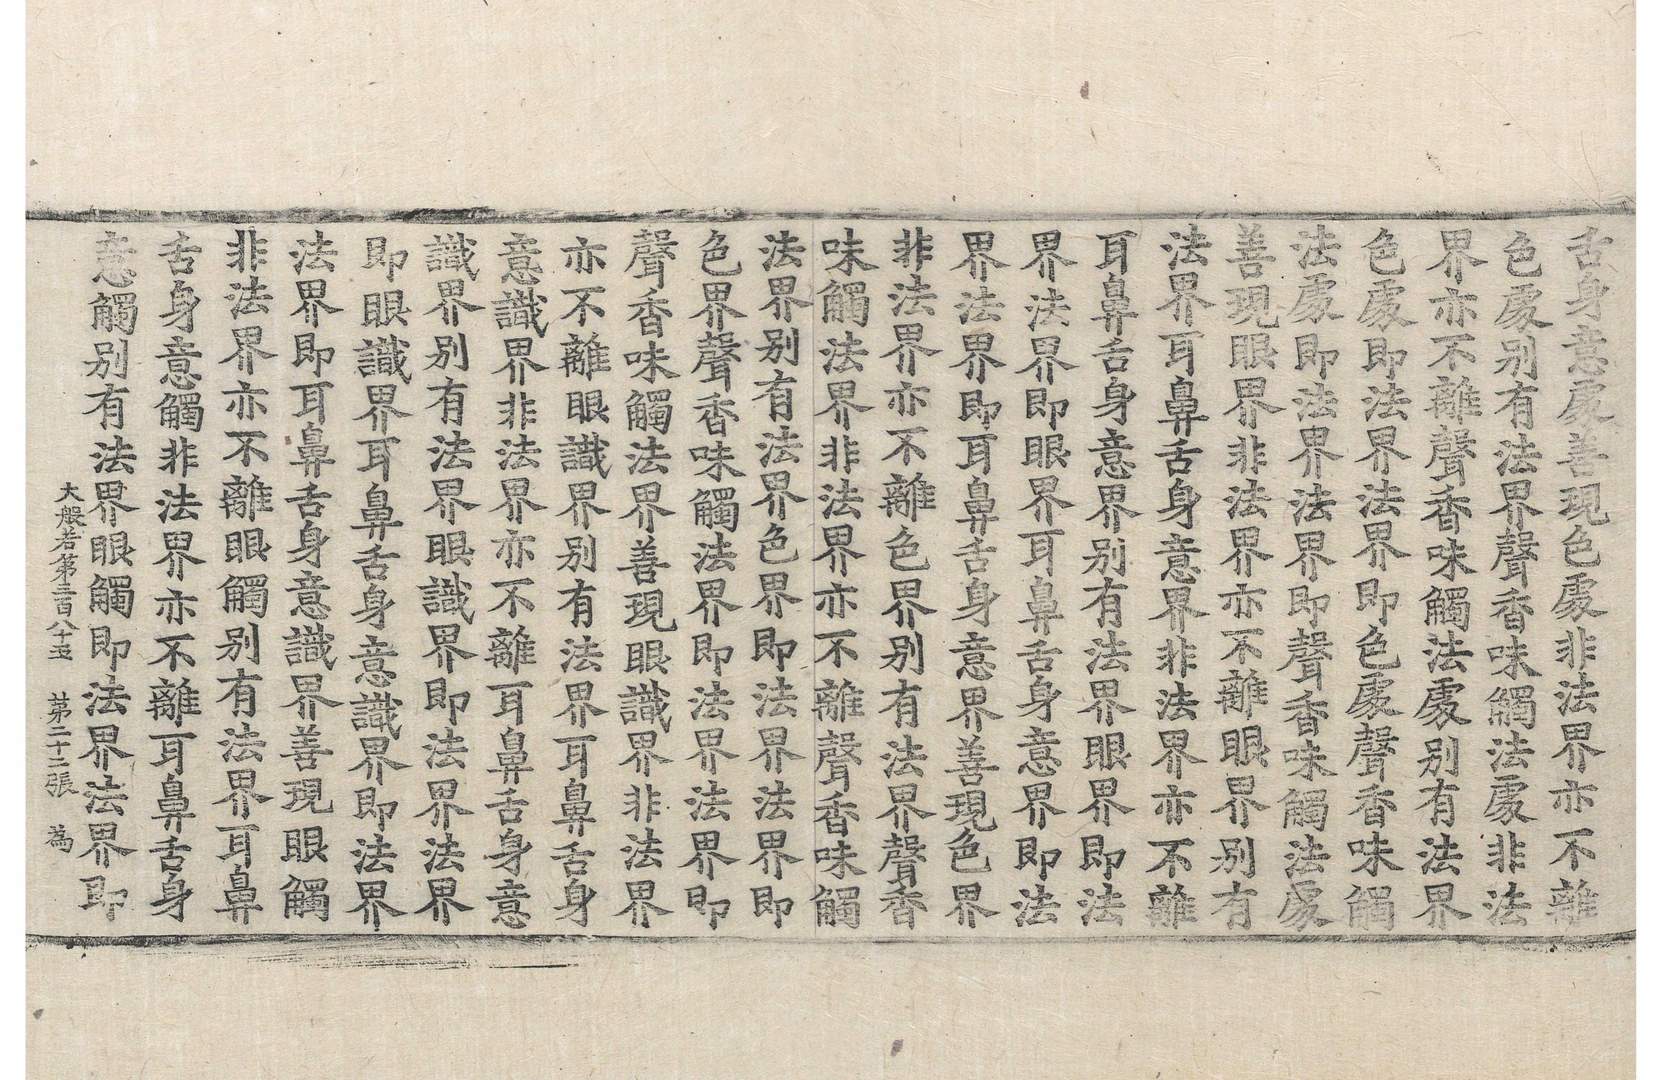 舌身意處善現色處非法界亦不離
色處别有法界聲香味觸法處非法
界亦不離聲香味觸法處别有法界
色處即法界法界即色處聲香味觸
法處即法界法界即聲香味觸法處
善現眼界非法界亦不離眼界别有
法界耳鼻舌身意界非法界亦不離
耳鼻舌身意界别有法界眼界即法
界法界即眼界耳鼻舌身意界即法
界法界即耳鼻舌身意界善現色界
非法界亦不離色界别有法界聲香
味觸法界非法界亦不離聲香味觸
法界别有法界色界即法界法界即
色界聲香味觸法界即法界法界即
聲香味觸法界善現眼識界非法界
亦不離眼識界别有法界耳鼻舌身
意識界非法界亦不離耳鼻舌身意
識界别有法界眼識界即法界法界
即眼識界耳鼻舌身意識界即法界
法界即耳鼻舌身意識界善現眼觸
非法界亦不離眼觸别有法界耳鼻
舌身意觸非法界亦不離耳鼻舌身
意觸别有法界眼觸即法界法界即
大般若第三百八十五 第二十二張 為